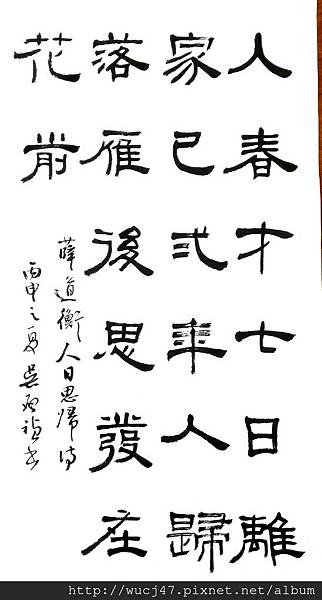 人春才七日離
家已弍年人歸
落雁後思發在
花前
薛道衡人日思歸詩
丙申之夏吳啟禎書
http://wucj47.pixnet.net/album